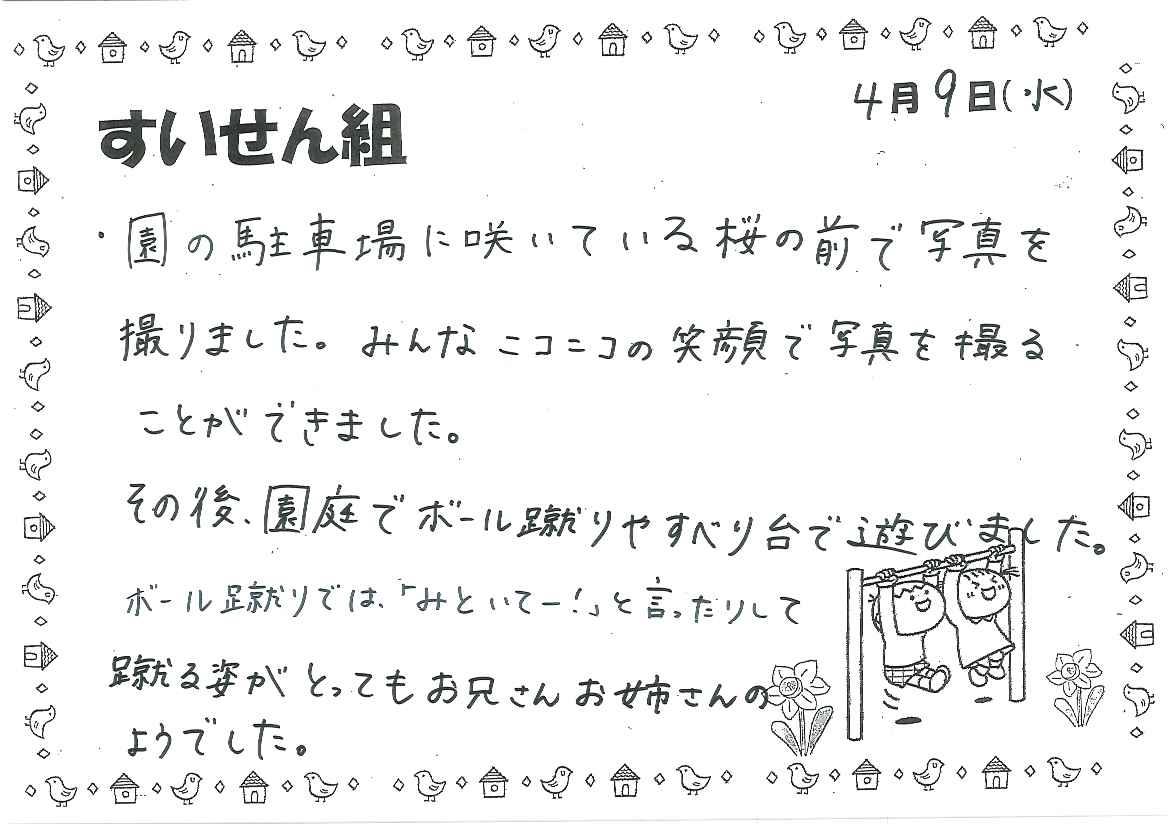 4月9日(水)
すいせん組
・園の駐車場に咲いている桜の前で写真を
撮りました。みんなニコニコの笑顔で写真を撮る
ことができました。
その後、園庭でボール蹴りやすべり台で遊びました。
ボール蹴りでは、「みといてー!」と言ったりして
蹴る姿がとってもお兄さんお姉さんの
ようでした。